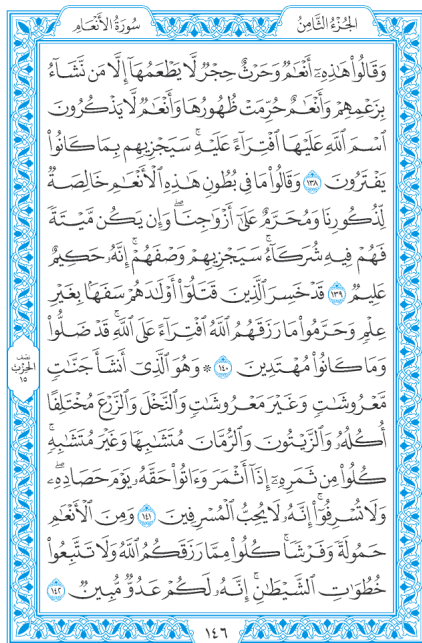 الجُزْءُ الثَّامِنُ
سُورَةُ الأَنْعَامِ
وَقَالُوا۟ هَٰذِهِۦٓ أَنْعَٰمٌ وَحَرْثٌ حِجْرٌ لَّا يَطْعَمُهَآ إِلَّا مَن نَّشَآءُ
بِزَعْمِهِمْ وَأَنْعَٰمٌ حُرِّمَتْ ظُهُورُهَا وَأَنْعَٰمٌ لَّا يَذْكُرُونَ
ٱسْمَ ٱللَّهِ عَلَيْهَا ٱفْتِرَآءً عَلَيْهِ ۚ سَيَجْزِيهِم بِمَا كَانُوا۟
يَفْتَرُونَ ١٣٨ وَقَالُوا۟ مَا فِى بُطُونِ هَٰذِهِ ٱلْأَنْعَٰمِ خَالِصَةٌ
لِّذُكُورِنَا وَمُحَرَّمٌ عَلَىٰٓ أَزْوَٰجِنَا ۖ وَإِن يَكُن مَّيْتَةً
فَهُمْ فِيهِ شُرَكَآءُ ۚ سَيَجْزِيهِمْ وَصْفَهُمْ ۚ إِنَّهُۥ حَكِيمٌ
عَلِيمٌ ١٣٩ قَدْ خَسِرَ ٱلَّذِينَ قَتَلُوٓا۟ أَوْلَٰدَهُمْ سَفَهًۢا بِغَيْرِ
عِلْمٍ وَحَرَّمُوا۟ مَا رَزَقَهُمُ ٱللَّهُ ٱفْتِرَآءً عَلَى ٱللَّهِ ۚ قَدْ ضَلُّوا۟
وَمَا كَانُوا۟ مُهْتَدِينَ ١٤٠ ۞ وَهُوَ ٱلَّذِىٓ أَنشَأَ جَنَّٰتٍ
مَّعْرُوشَٰتٍ وَغَيْرَ مَعْرُوشَٰتٍ وَٱلنَّخْلَ وَٱلزَّرْعَ مُخْتَلِفًا
أُكُلُهُۥ وَٱلزَّيْتُونَ وَٱلرُّمَّانَ مُتَشَٰبِهًا وَغَيْرَ مُتَشَٰبِهٍ ۚ
كُلُوا۟ مِن ثَمَرِهِۦٓ إِذَآ أَثْمَرَ وَءَاتُوا۟ حَقَّهُۥ يَوْمَ حَصَادِهِۦ ۖ
وَلَا تُسْرِفُوٓا۟ ۚ إِنَّهُۥ لَا يُحِبُّ ٱلْمُسْرِفِينَ ١٤١ وَمِنَ ٱلْأَنْعَٰمِ
حَمُولَةً وَفَرْشًا ۚ كُلُوا۟ مِمَّا رَزَقَكُمُ ٱللَّهُ وَلَا تَتَّبِعُوا۟
خُطُوَٰتِ ٱلشَّيْطَٰنِ ۚ إِنَّهُۥ لَكُمْ عَدُوٌّ مُّبِينٌ ١٤٢
نِصْف
الحِزْب
١٥
١٤٦